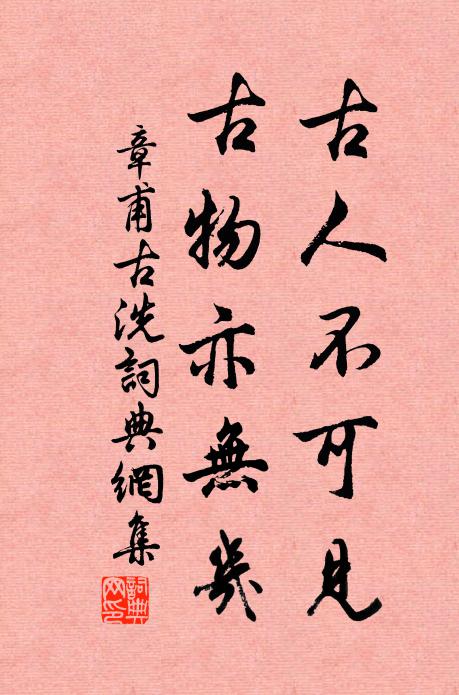 古人不可見
古物亦無幾
章甫古洗詞典網集
詞典網印